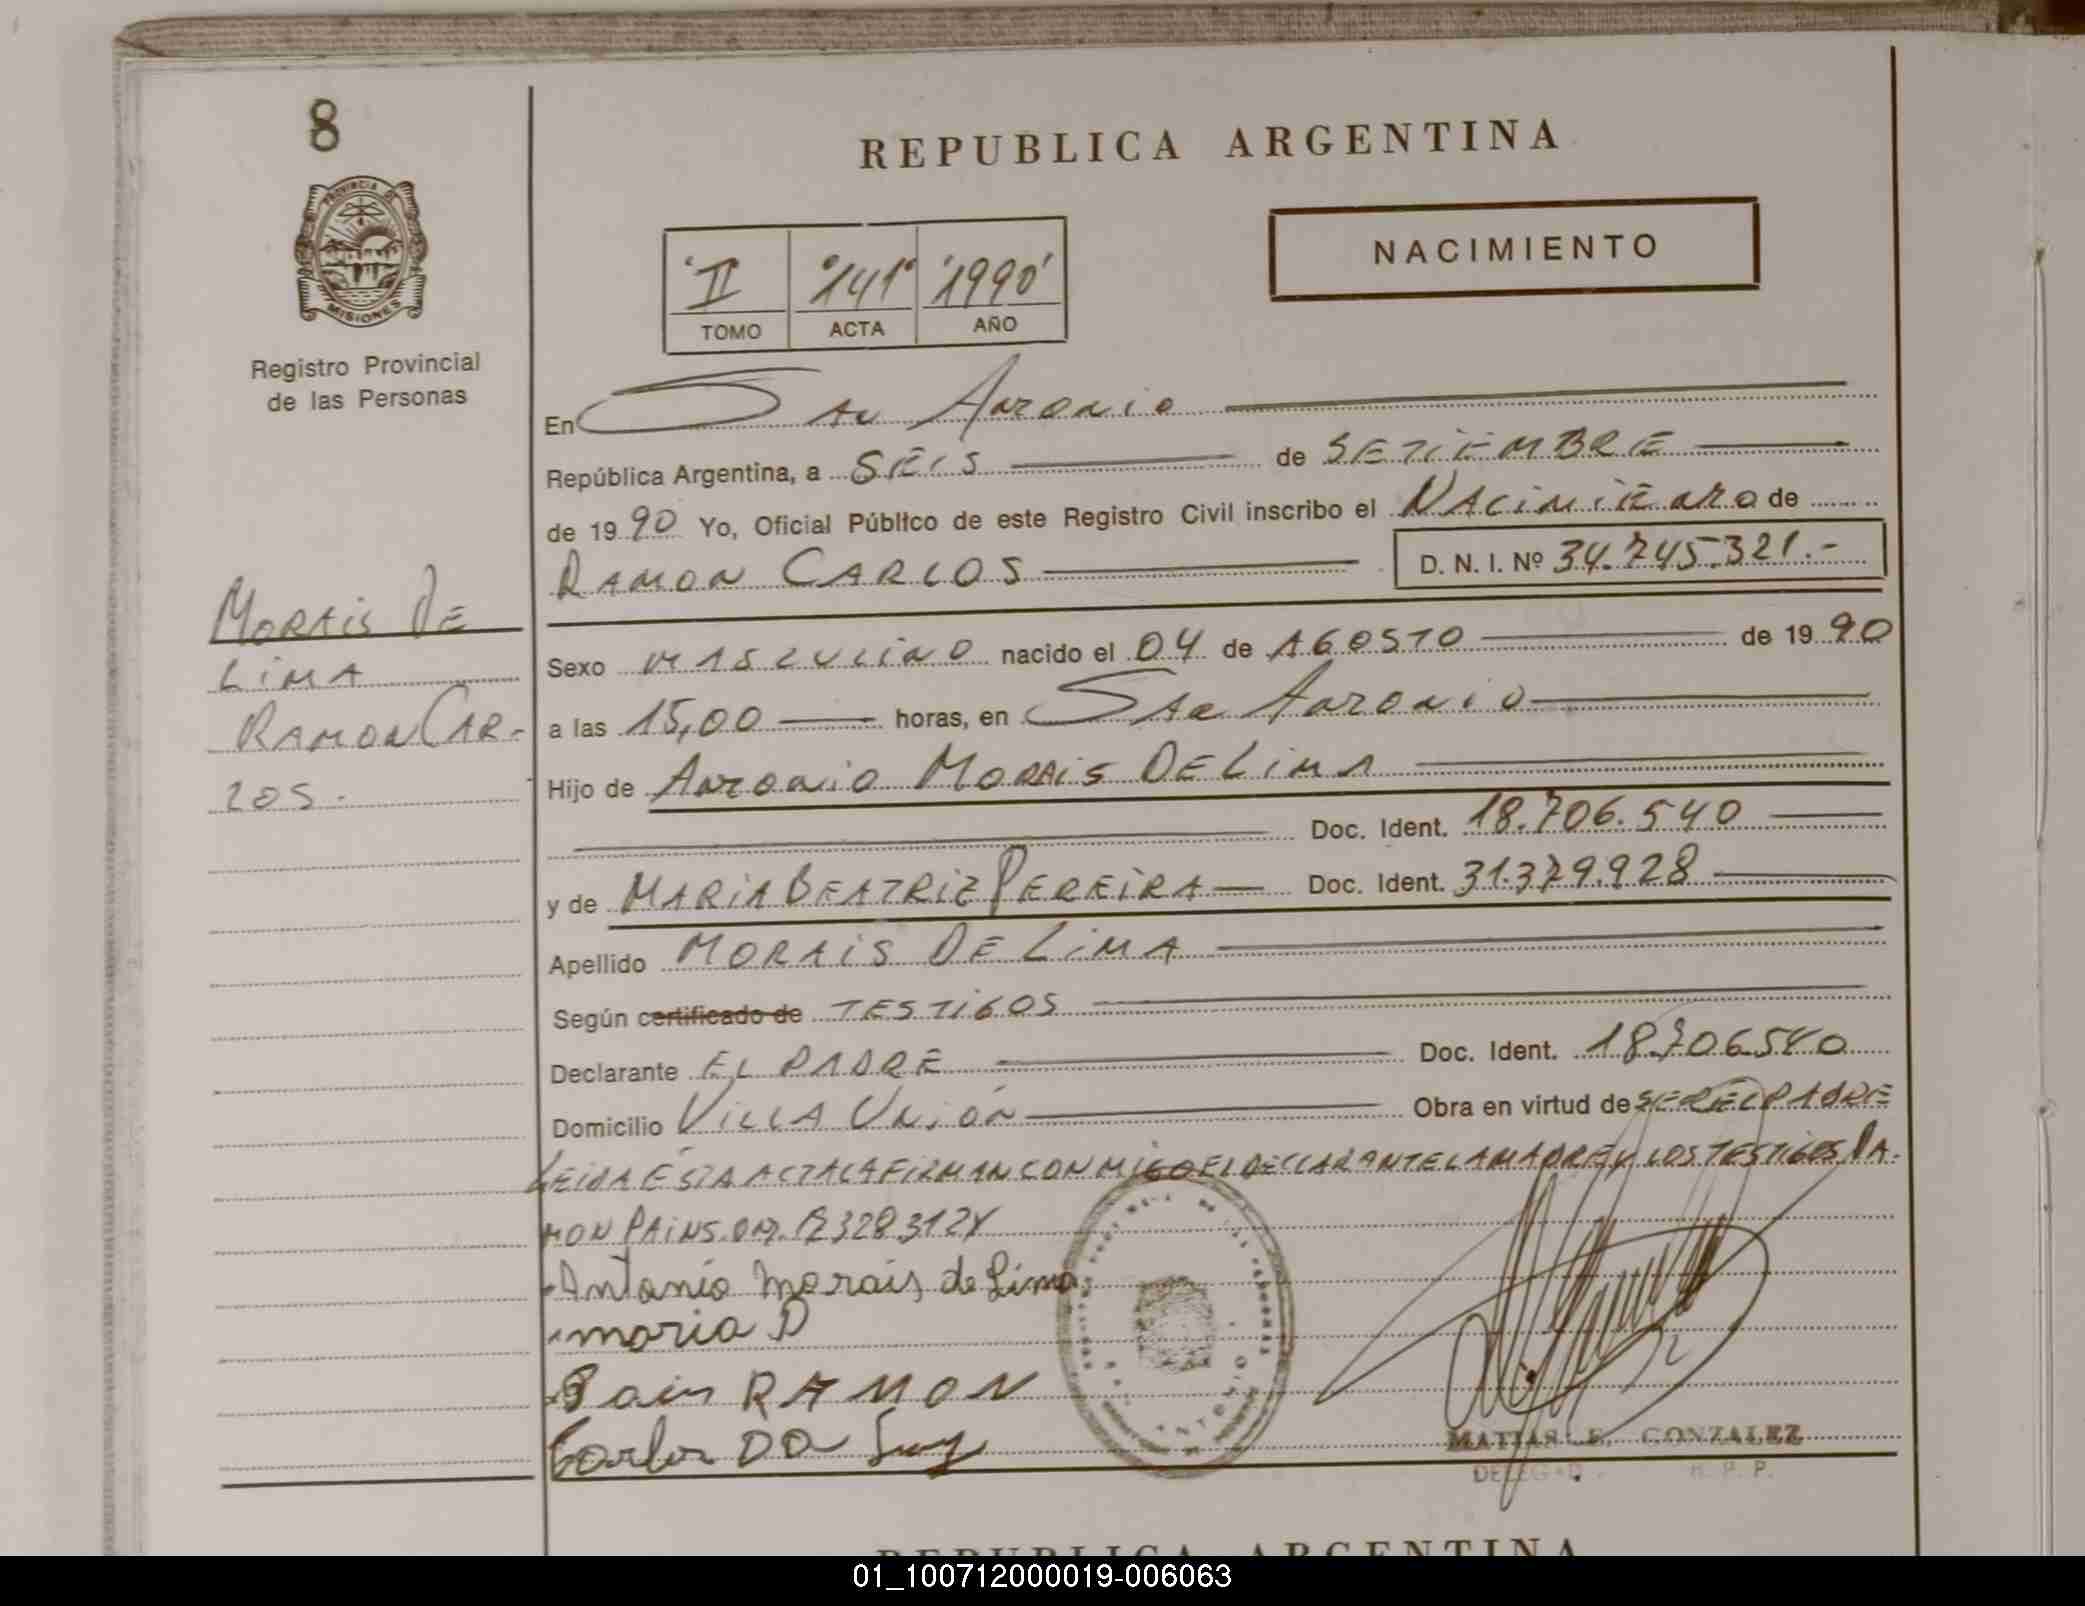 8
PROVINCIA DE
MISIONES
Registro Provincial
de las Personas
REPUBLICA ARGENTINA
NACIMIENTO
II 141 1990
TOMO ACTA AÑO
En San Antonio
República Argentina, a SEIS de SETIEMBRE
de 1990 Yo, Oficial Público de este Registro Civil inscribo el Nacimiento de
RAMON CARLOS D. N. I. Nº 34.745.321.-
MORAIS DE
LIMA
RAMON CAR-
LOS.
Sexo MASCULINO nacido el 04 de AGOSTO de 1990
a las 15,00 horas, en San Antonio
Hijo de Antonio MORAIS DE LIMA
Doc. Ident. 18.706.540
y de MARIA BEATRIZ PEREIRA Doc. Ident. 31.379.928
Apellido MORAIS DE LIMA
Según certificado de TESTIGOS
Declarante EL PADRE Doc. Ident. 18.706.540
Domicilio VILLA UNIÓN Obra en virtud de SER EL PADRE
LEIDA ESTA ACTA LA FIRMAN CONMIGO EL DECLARANTE LA MADRE Y LOS TESTIGOS RA-
MON PAINS
Antonio morais de Lima
maria P
Pain RAMON
Carlos DA
MATIAS E. GONZALEZ
R. P. P.
REPUBLICA ARGENTINA
01_100712000019-006063